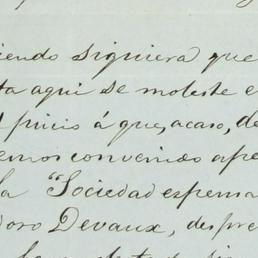 iendo siquiera que
ta aqui se moleste e
juicio á que, acaso, de
emos convenido ape
la "Sociedad espema
doro Devaux, despre